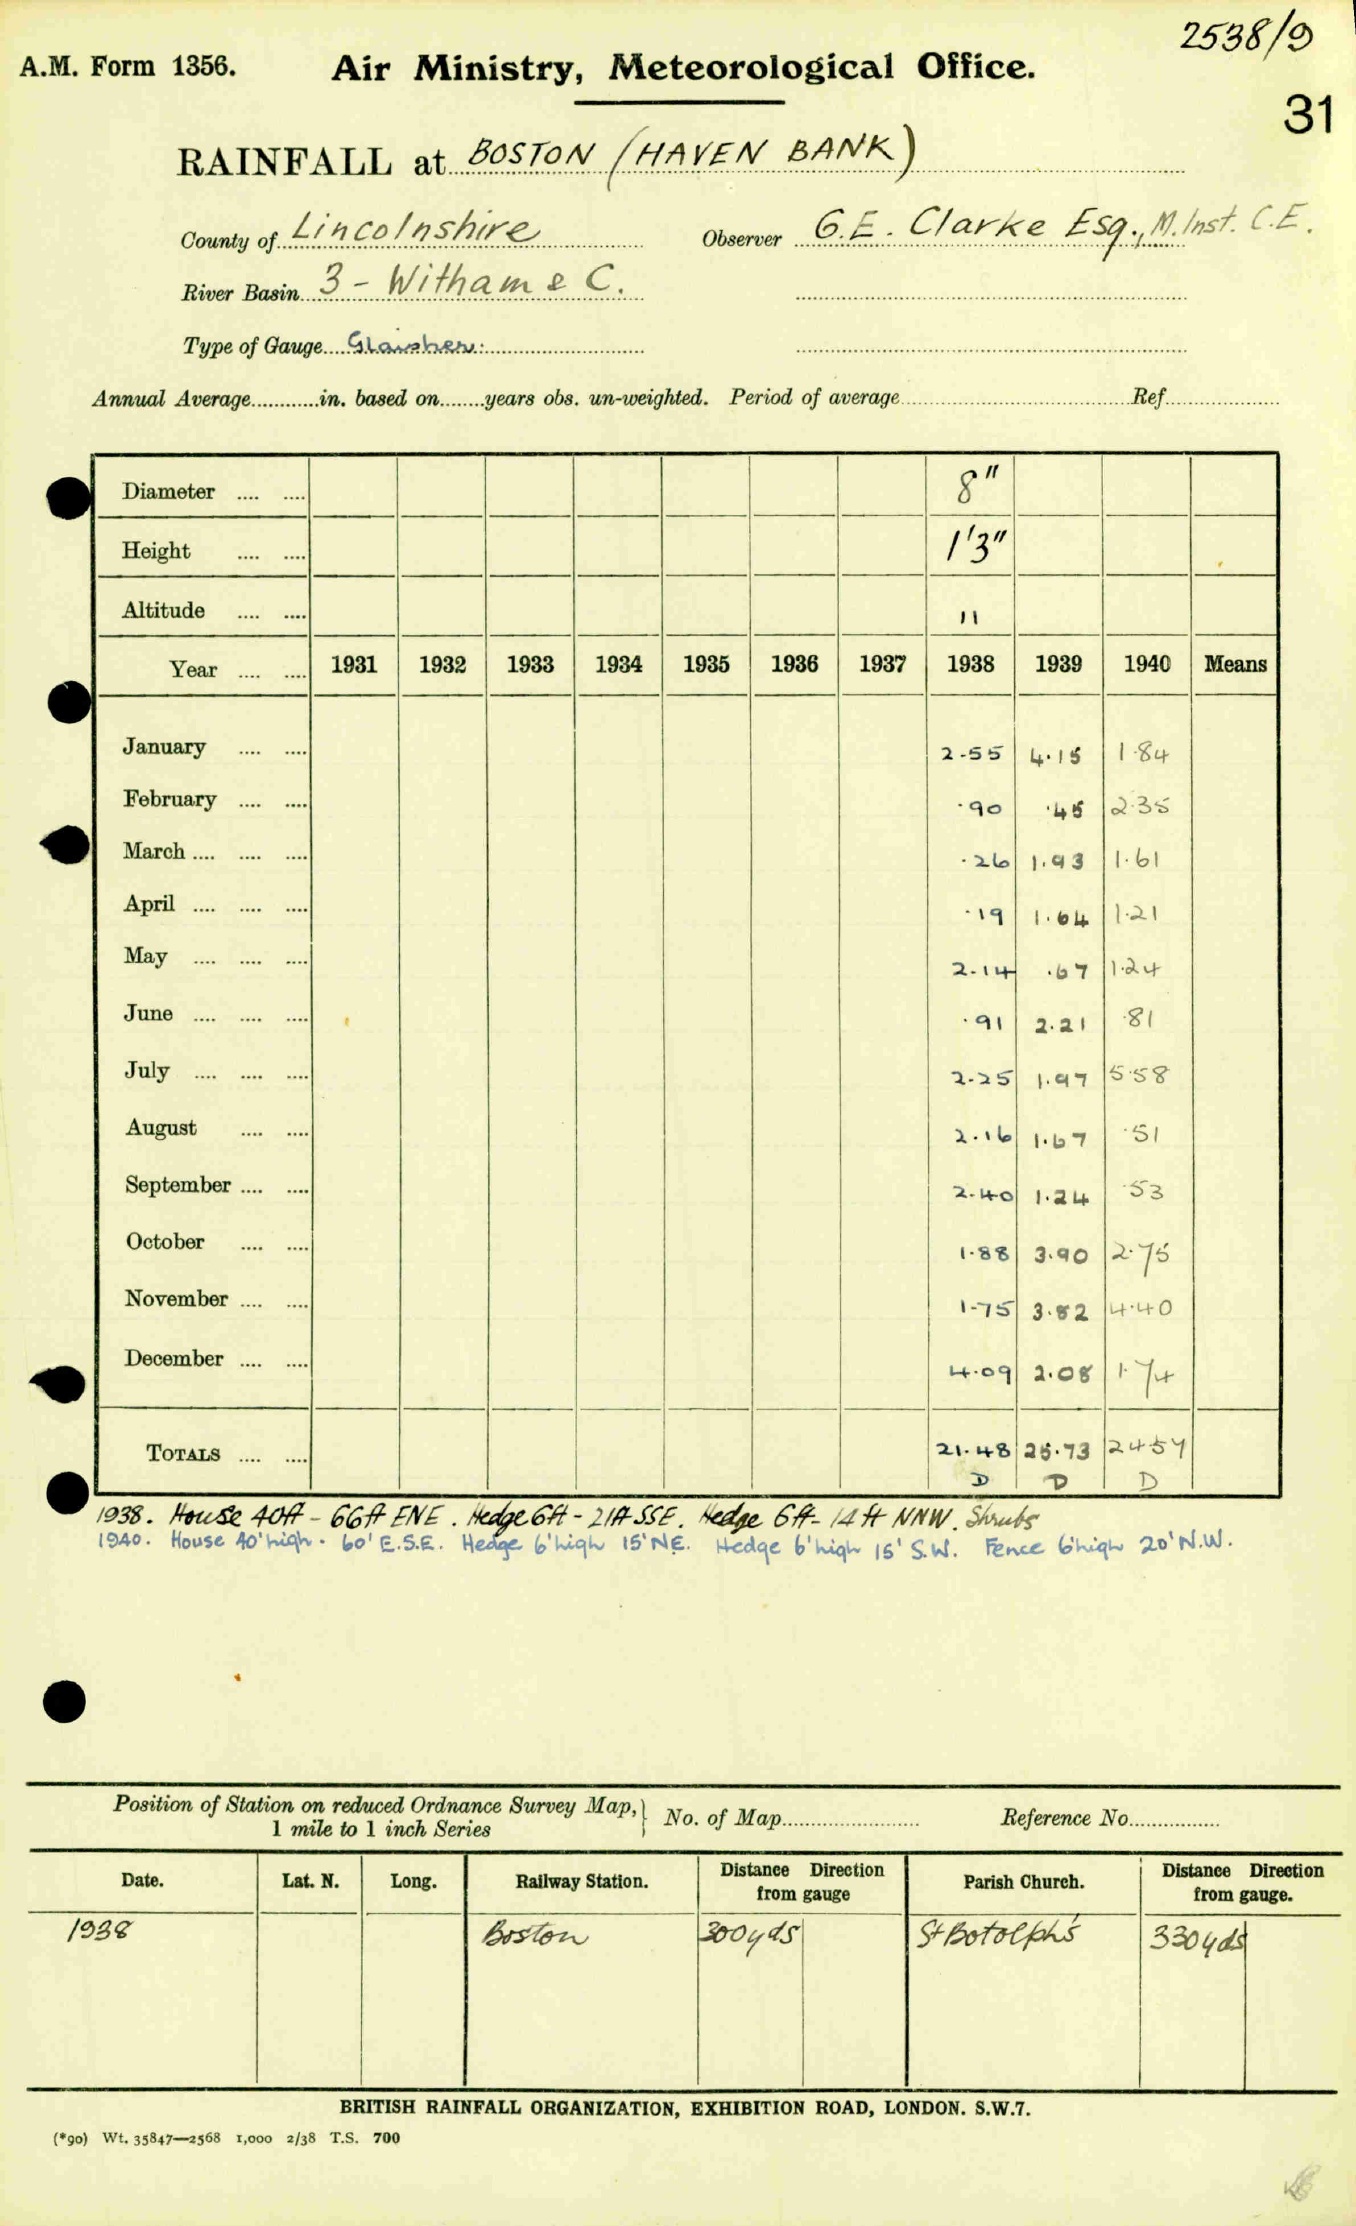 2538/9
A.M. Form 1356. Air Ministry, Meteorological Office.
31
RAINFALL at BOSTON (HAVEN BANK)
County of Lincolnshire Observer G.E. Clarke Esq., M.Inst. C.E.
River Basin 3 - Witham & C.
Type of Gauge Glaisher.
Annual Average............in. based on........years obs. un-weighted. Period of average.................... Ref................
Diameter .... .... 8"
Height .... .... 1'3"
Altitude .... .... 11
Year .... .... 1931 1932 1933 1934 1935 1936 1937 1938 1939 1940 Means
January .... .... 2.55 4.15 1.84
February .... .... .90 .45 2.35
March .... .... .... .26 1.93 1.61
April .... .... .... .19 1.64 1.21
May .... .... .... 2.14 .67 1.24
June .... .... .... .91 2.21 .81
July .... .... .... 2.25 1.97 5.58
August .... .... 2.16 1.67 .51
September .... .... 2.40 1.24 .53
October .... .... 1.88 3.90 2.75
November .... .... 1.75 3.82 4.40
December .... .... 4.09 2.08 1.74
TOTALS .... .... 21.48 25.73 24.57
D D D
1938. House 40ft - 66ft ENE. Hedge 6ft - 21ft SSE. Hedge 6ft - 14ft NNW. Shrubs
1940. House 40'high. 60' E.S.E. Hedge 6'high 15' NE. Hedge 6'high 15' S.W. Fence 6'high 20' N.W.
Position of Station on reduced Ordnance Survey Map, No. of Map........................ Reference No................
1 mile to 1 inch Series
Date. Lat. N. Long. Railway Station. Distance Direction from gauge Parish Church. Distance Direction from gauge.
1938 Boston 300yds St Botolph's 330yds
BRITISH RAINFALL ORGANIZATION, EXHIBITION ROAD, LONDON. S.W.7.
(*90) Wt. 35847—2568 1,000 2/38 T.S. 700